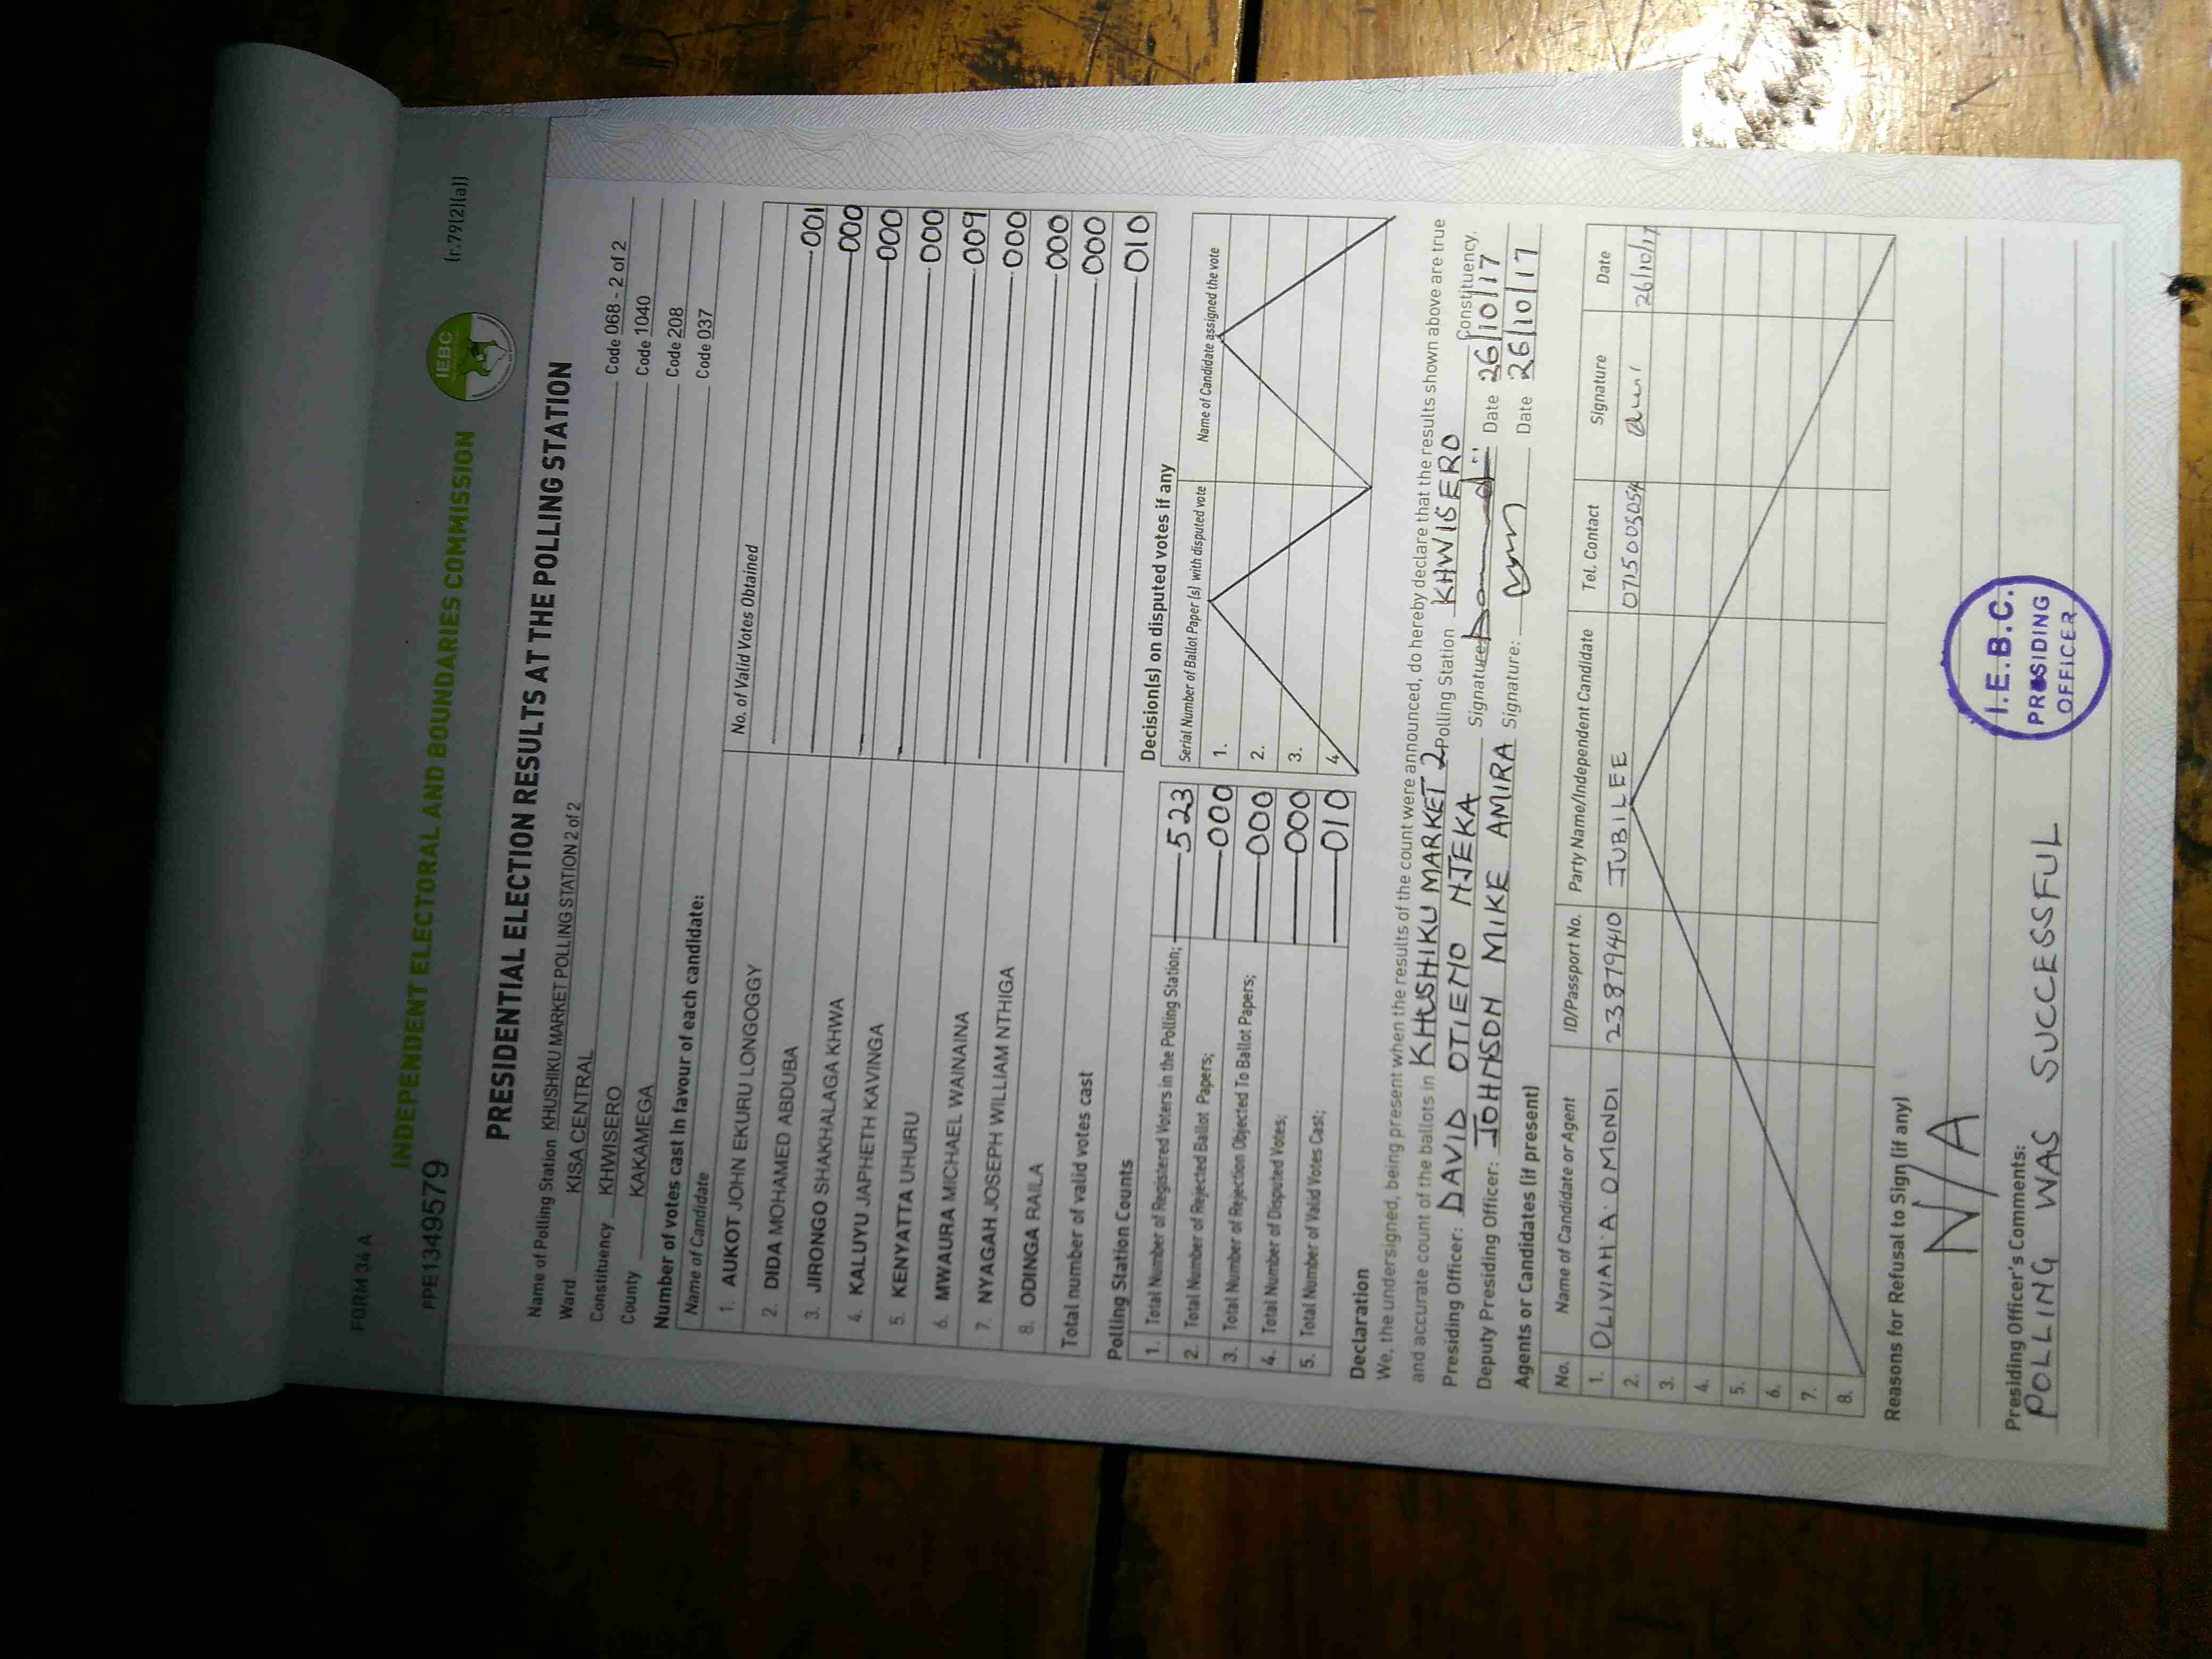 FORM 34 A
INDEPENDENT ELECTORAL AND BOUNDARIES COMMISSION
IEBC
(r.79(2)(a))
PPE1349579
PRESIDENTIAL ELECTION RESULTS AT THE POLLING STATION
Name of Polling Station KHUSHIKU MARKET POLLING STATION 2 of 2 Code 068 - 2 of 2
Ward KISA CENTRAL Code 1040
Constituency KHWISERO Code 208
County KAKAMEGA Code 037
Number of votes cast in favour of each candidate:
Name of Candidate No. of Valid Votes Obtained
1. AUKOT JOHN EKURU LONGOGGY 001
2. DIDA MOHAMED ABDUBA 000
3. JIRONGO SHAKHALAGA KHWA 000
4. KALUYU JAPHETH KAVINGA 000
5. KENYATTA UHURU 009
6. MWAURA MICHAEL WAINAINA 000
7. NYAGAH JOSEPH WILLIAM NTHIGA 000
8. ODINGA RAILA 000
Total number of valid votes cast 010
Polling Station Counts
1. Total Number of Registered Voters in the Polling Station; 523
2. Total Number of Rejected Ballot Papers; 000
3. Total Number of Rejection Objected To Ballot Papers; 000
4. Total Number of Disputed Votes; 000
5. Total Number of Valid Votes Cast; 010
Decision(s) on disputed votes if any
Serial Number of Ballot Paper (s) with disputed vote Name of Candidate assigned the vote
1.
2.
3.
4.
Declaration
We, the undersigned, being present when the results of the count were announced, do hereby declare that the results shown above are true
and accurate count of the ballots in KHUSHIKU MARKET 2 Polling Station KHWISERO Constituency.
Presiding Officer: DAVID OTIENO NJEKA Signature: Date 26/10/17
Deputy Presiding Officer: JOHNSON MIKE AMIRA Signature: Date 26/10/17
Agents or Candidates (if present)
No. Name of Candidate or Agent ID/Passport No. Party Name/Independent Candidate Tel. Contact Signature Date
1. OLIVIAH A. OMONDI 23879410 JUBILEE 0715005054 26/10/17
2.
3.
4.
5.
6.
7.
8.
Reasons for Refusal to Sign (if any)
N/A
Presiding Officer's Comments:
POLLING WAS SUCCESSFUL
I.E.B.C.
PRESIDING
OFFICER